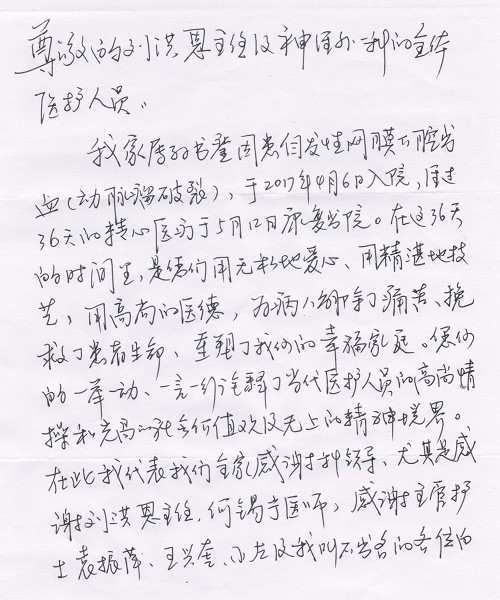 尊敬的刘洪恩主任及神经外科的全体
医护人员。
我家属 书登因患自发性网膜下腔出
血（动脉瘤破裂），于2017年4月6日入院，经过
36天的精心医疗于5月12日康复出院。在这36天
的时间里，是您们用无私地爱心、用精湛地技
艺，用高尚的医德，为病人解除了痛苦、挽
救了患者生命，重塑了我们的幸福家庭。您们
的一举一动、一言一行诠释了当代医护人员的高尚情
操和崇高的社会价值观及无上的精神境界。
在此我代表我们全家感谢 科领导、尤其是感
谢刘洪恩主任，何锡 医师，感谢主管护
士袁振萍、王兴奎、小左及我叫不出名的各位白